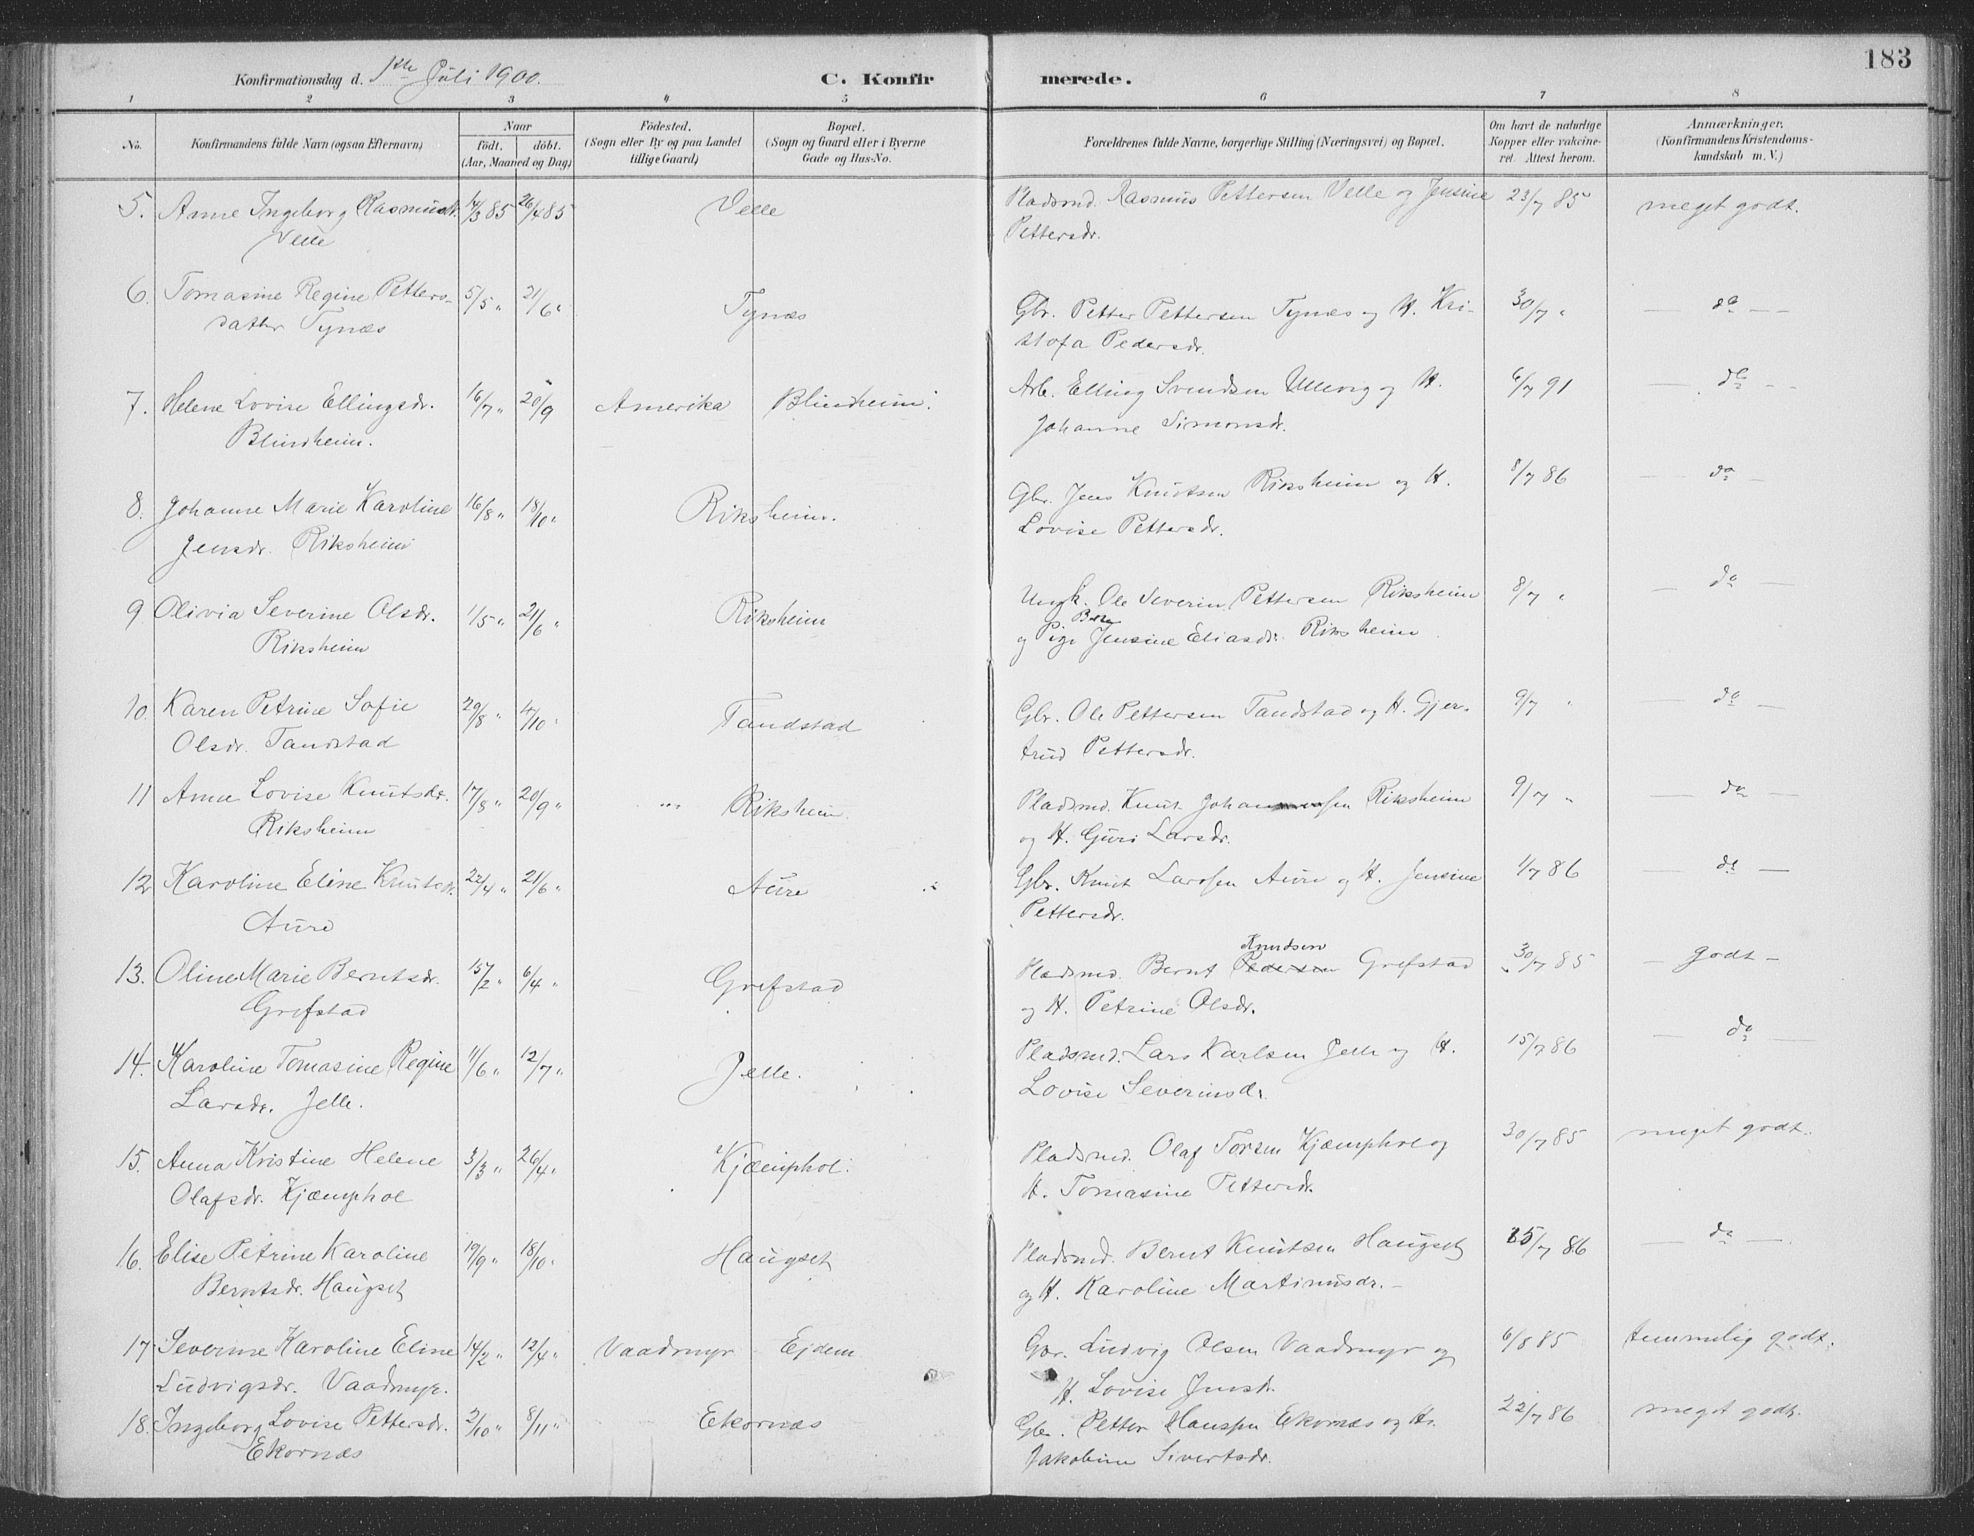 183
Konfirmationsdag d. 1ste Juli 1900. C. Konfirmerede.
1 2 3 4 5 6 7 8
No. Konfirmandens fulde Navn (ogsaa Efternavn) Naar født. døbt. (Aar, Maaned og Dag) Fødested. (Sogn eller By og paa Landet tillige Gaard) Bopæl. (Sogn og Gaard eller i Byerne Gade og Hus-No. Forældrenes fulde Navne, borgerlige Stilling (Næringsvei) og Bopæl. Om havt de naturlige Kopper eller vakcineret. Attest herom. Anmærkninger. (Konfirmandens Kristendomskundskab m. V.)
5. Anne Ingeborg Rasmusdr. 4/3 85 26/4 85 Velle Pladsmd. Rasmus Pettersen Velle og Jensine 23/7 85 meget godt.
Velle Pettersdr.
6. Tomasine Regine Petters- 5/5 " 21/6 " Tynæs Gbr. Petter Pettersen Tynæs og H. Kri- 30/7 " — do —
datter Tynæs stofa Pedersdr.
7. Helene Lovise Ellingsdr. 16/7 " 20/9 Amerika Blindheim. Arb. Elling Svendsen Ullevig og H. 6/7 91 — do —
Blindheim. Johanne Simonsdr.
8. Johanne Marie Karoline 16/8 " 18/10 " Riksheim. Gbr. Jens Knutsen Riksheim og H. 8/7 86 — do —
Jensdr. Riksheim Lovise Pettersdr.
9 Olivia Severine Olsdr. 1/5 " 21/6 " Riksheim Ungk. Ole Severin Pettersen Riksheim 8/7 " — do —
Riksheim og Pige Jensine Eliasdr. Riksheim
10. Karen Petrine Sofie 29/8 " 4/10 " Tandstad Gbr. Ole Pettersen Tandstad og H. Gjer- 9/7 " — do —
Olsdr. Tandstad trud Pettersdr.
11 Anne Lovise Knutsdr. 17/8 " 20/9 " Riksheim Pladsmd. Knut Johansen Riksheim 9/7 " — do —
Riksheim og H. Guri Larsdr.
12 Karoline Eline Knutsdr. 22/4 " 21/6 " Aure Gbr. Knut Larssen Aure og H. Jensine 1/7 86 — do —
Aure Pettersdr.
Knudsen
13. Oline Marie Berntsdr. 15/2 " 6/4 " Grefstad Pladsmd. Bernt Pedersen Grefstad 30/7 85 — godt —
Grefstad og H. Petrine Olsdr.
14. Karoline Tomasine Regine 11/6 " 12/7 " Jelle. Pladsmd. Lars Karlsen Jelle og H. 15/7 86 — do —
Larsdr. Jelle. Lovise Severinsdr.
15. Anna Kristine Helene 3/3 " 26/4 " Kjæmphol. Pladsmd. Olaf Torsen Kjæmphol og 30/7 85 meget godt.
Olafsdr. Kjæmphol H. Tomasine Pettersdr.
16. Elise Petrine Karoline 19/9 " 18/10 " Haugset Pladsmd. Bernt Knutsen Haugset 15/7 86 — do —
Berntsdr. Haugset og H. Karoline Martinusdr.
17 Severine Karoline Eline 14/2 " 12/4 " Vaadmyr Ejdem Gbr. Ludvig Olsen Vaadmyr og 6/8 85 temmelig godt.
Ludvigsdr. Vaadmyr. H. Lovise Jensdr.
18. Ingeborg Lovise Pettersdr. 2/10 " 8/11 " Ekornæs Gbr. Petter Hanssen Ekornæs og H. 22/7 86 meget godt.
Ekornæs Jakobine Sivertsdr.